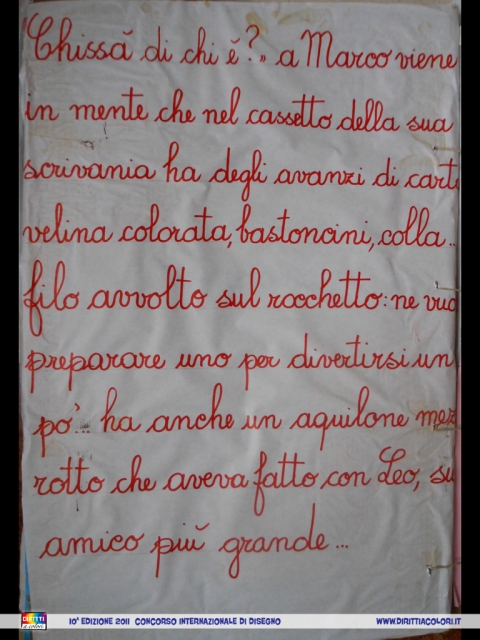 "Chissà di chi è?" a Marco viene
in mente che nel cassetto della sua
scrivania ha degli avanzi di cart
velina colorata, bastoncini, colla...
filo avvolto sul rocchetto: ne vuo
preparare uno per divertirsi un
po'... ha anche un aquilone mez
rotto che aveva fatto con Leo, su
amico più grande...
DIRITTI a colori
10ª EDIZIONE 2011 CONCORSO INTERNAZIONALE DI DISEGNO
WWW.DIRITTIACOLORI.IT